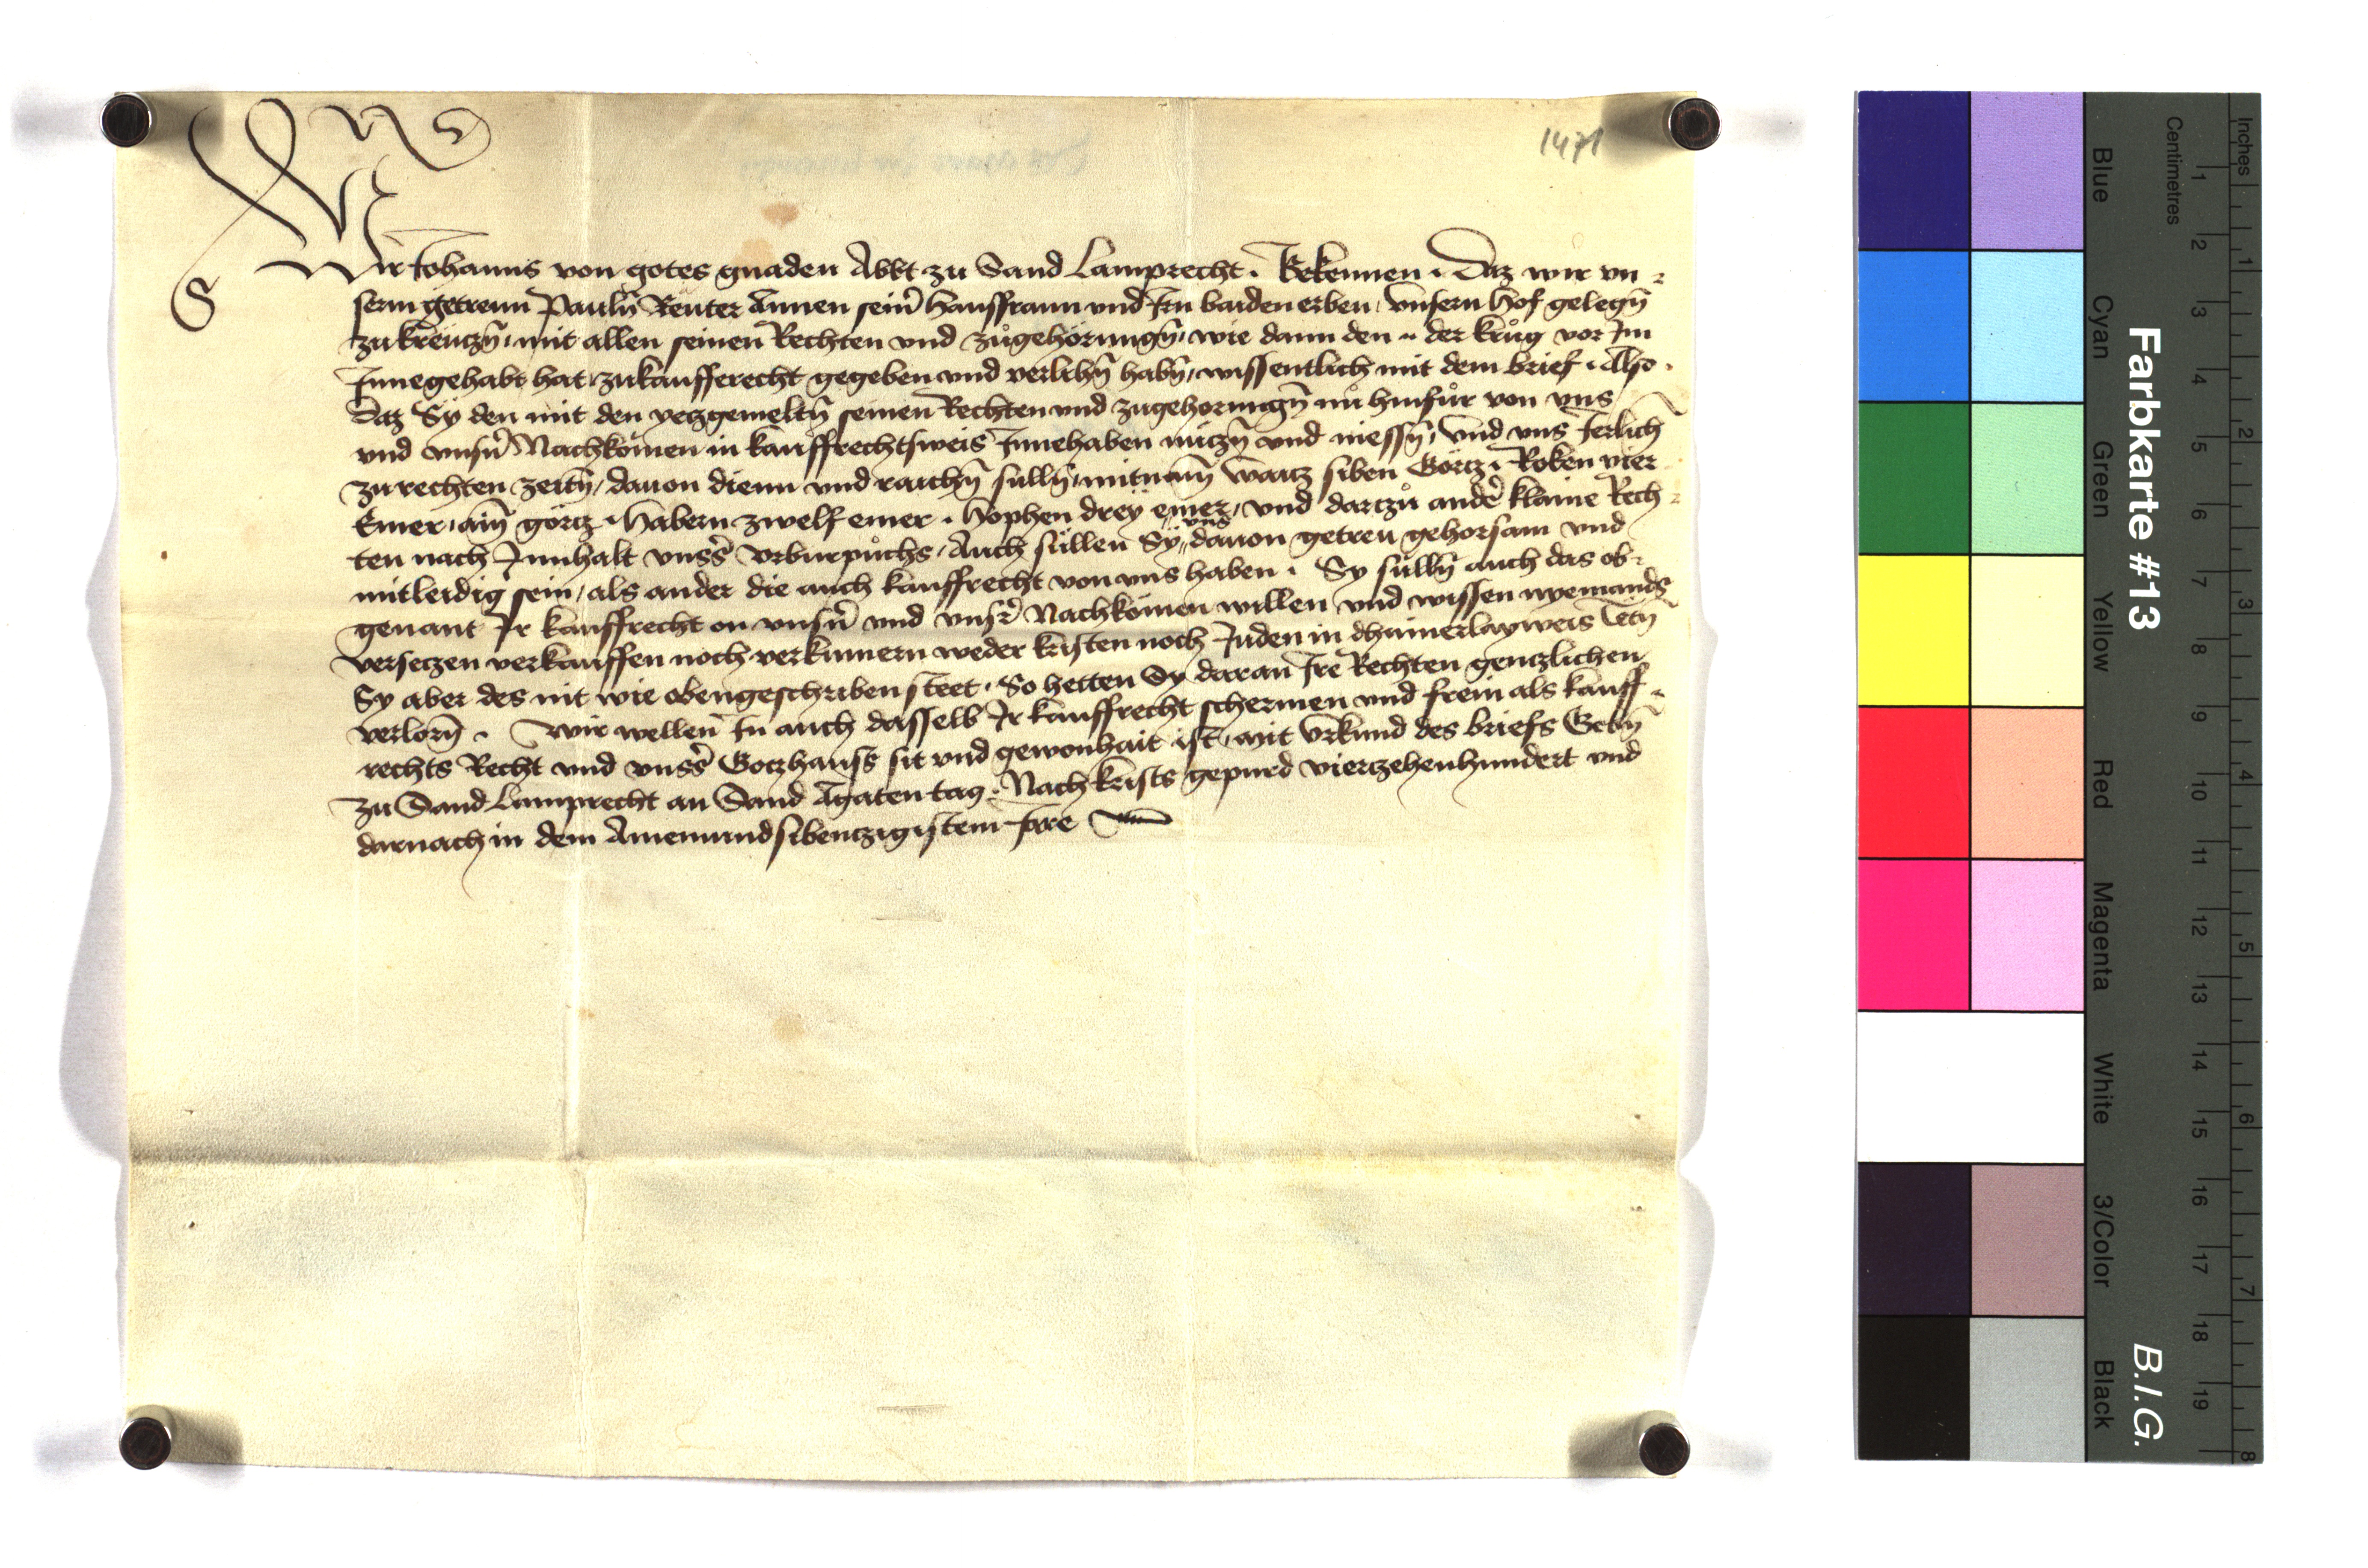 1471
Wir Johanns von gotes gnaden Abbt zu Sand Lamprecht. Bekennen. Daz wir vn=
serm getrenn Pauln̄ Reuter Annen sein̄ hausfraun vnd Irn baiden erben, Vnsern Hof gelegn̄
zu Kreuczn̄, mit allen seinen Rechten vnd zůgehörungn̄, wie dann den .. der Krůg vor Im
Innegehabt hat, zukaufferecht gegeben vnd verlihn̄ habn̄, wissentlich mit dem brief. Also.
Daz Sÿ den mit den yeczgemeltn̄ seinen Rechten vnd zugehorungn̄ nů hinfůr von vns
vnd vnsn̄ Nachkomen in kauffrechtsweis Innehaben nůczn̄ vnd niessn̄, Vnd vns Jerlich
zu rechten zeitn̄, dauon dienn vnd raichn̄ sulln̄, mitnam̄ Waicz siben Görcz. Roken vier
Emer, ain̄ görcz. Habern zwelf emer. Hophen dreÿ emer, vnd darczů ander̄ klaine Rech=
ten nach Innhalt vnss̄ vrburpůchs, Auch sůllen Sÿ vns dauon getreu gehorsam vnd
mitleidig sein, als ander die auch kauffrecht von vns haben. Sy sůlln̄ auch das ob=
genant Ir kauffrecht on vnsn̄ vnd vnsr̄ Nachkomen willen vnd wissen nyemands
verseczen verkauffen noch verkumern weder kristen noch Juden in dhainerlayweis Tetn̄
Sy aber des nit wie obengeschriben steet. So hetten Sy daran Ire Rechten genczlichen
verlorn̄. Wir wellen In auch dasselb Ir kauffrecht schermen vnd frein als kauff=
rechts Recht vnd vnss̄ Goczhauss sit vnd gewonhait ist, mit Vrkund des briefs Gebn̄
zu Sand Lamprecht an Sand Agaten tag. Nach Krists gepurd vierczehenhundert vnd
darnach in dem Ainenundsibenczigistem Jare
Farbkarte #13
B.I.G.
Inches
Centimetres
Blue
Cyan
Green
Yellow
Red
Magenta
White
3/Color
Black
1 2 3 4 5 6 7 8 9 10 11 12 13 14 15 16 17 18 19
1 2 3 4 5 6 7 8